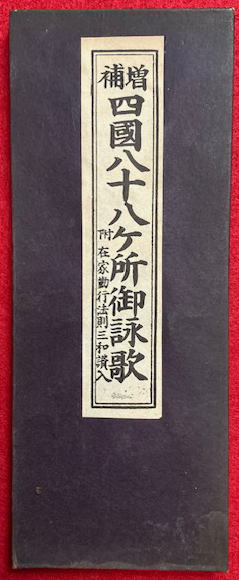 増補
四國八十八ケ所御詠歌
附 在家勤行法則三和讃入